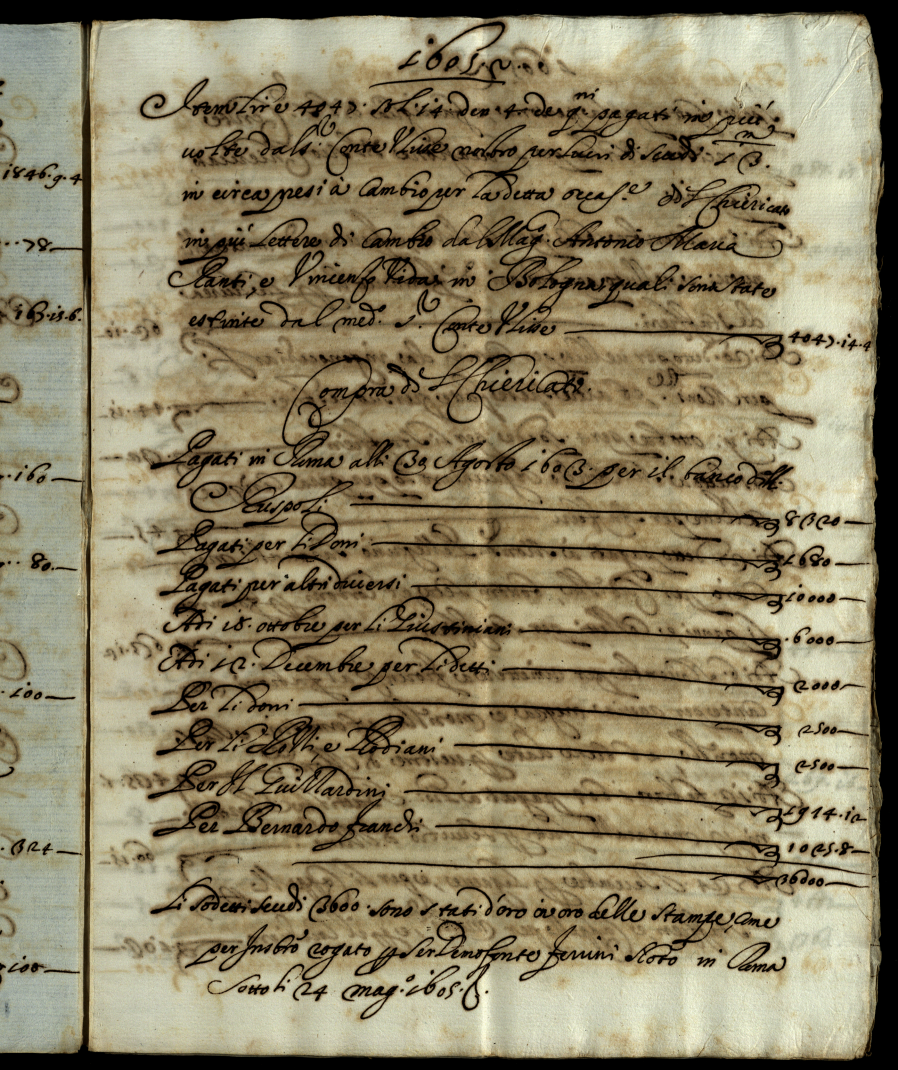 1846.9.4
78
163.15.6.
160
80
100
324
100
1605.
Item lire 4047. sol. 14. den. 4. de q.ni pagati in più
volte dal s.r Conte Ulisse nostro per lucri di scudi 13.m
in circa presi à Cambio per la detta occas.e del Chiericato
in più lettere di Cambio da Mag. Antonio Maria
e Vincenso Vidai in Bologna, quali sono state
estinte dal med.o s.r Conte Ulisse 4047.14.4
Compra del Chiericato.
Pagati in Roma alli 30 Agosto 1603. per il banco delli
Ruspoli 8320
Pagati per li Doni 1680
Pagati per altri diversi 10000
Adi 18. ottobre per li Giustiniani 6000
Adi 12. Decembre per li detti 2000
Per li doni 2500
Per li e Rodiani 2500
Per li Guizzardini 1974.12
Per Bernardo franchi 1025.8
36000
Li sodetti scudi 3600. sono stati d'oro in oro delle stampe, come
per Instro rogato p ser Senofonte Noto in Roma
sotto li 24 mag.o 1605.